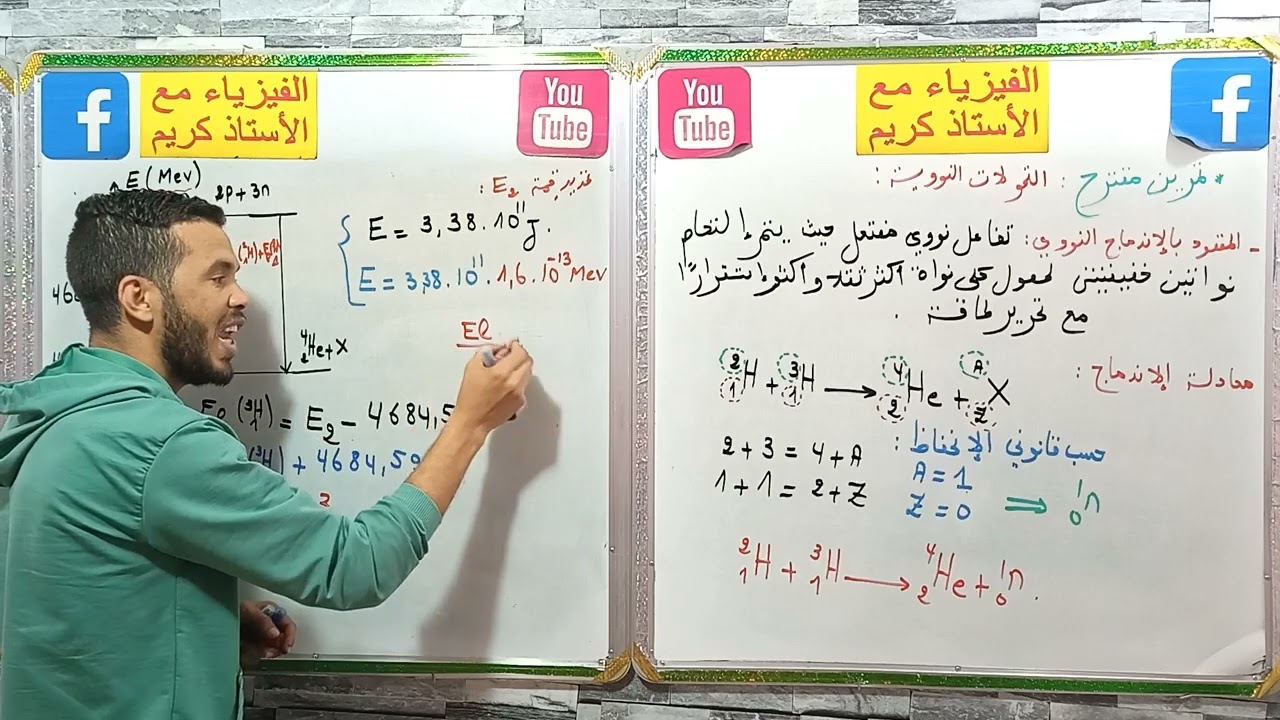 الفيزياء مع
الأستاذ كريم
You
Tube
E (Mev)
2p + 3n
468
⁴₂He + X
E₂ :
E = 3,38.10¹¹ J.
E = 3,38.10¹¹.1,6.10⁻¹³ Mev
El
(³₁H) = E₂ - 4684,5
(³₁H) + 4684,59
You
Tube
الفيزياء مع
الأستاذ كريم
* تمرين مقترح : التحولات النووية :
- المقصود بالإندماج النووي : تفاعل نووي مفتعل حيث يتم إلتحام
نواتين خفيفتين لحصول على نواة أكثر ثقلا وأكثر إستقرارًا
مع تحرير طاقة .
معادلة الإندماج :
²₁H + ³₁H ⟶ ⁴₂He + ᴬ_Z X
حسب قانوني الإنحفاظ :
2 + 3 = 4 + A
A = 1
1 + 1 = 2 + Z
Z = 0 ⟹ ¹₀n
²₁H + ³₁H ⟶ ⁴₂He + ¹₀n.